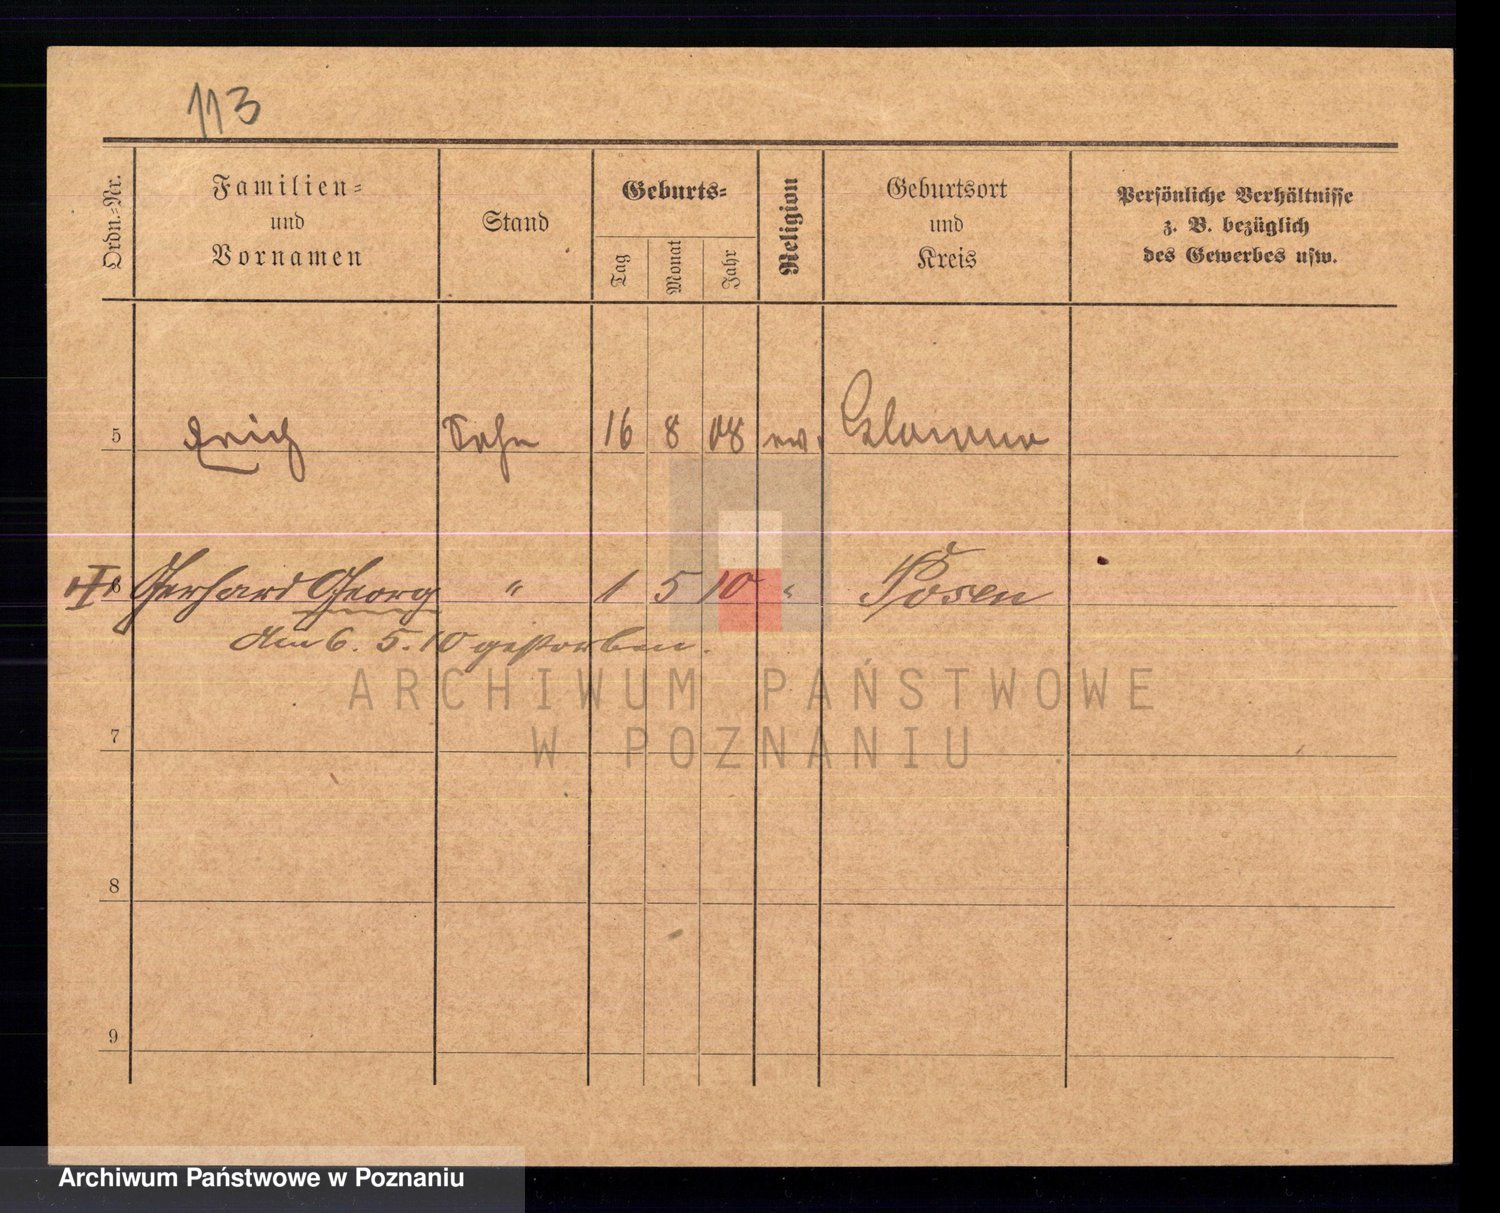 113
Ordn.-Nr.
Familien-
und
Vornamen
Stand
Geburts-
Tag
Monat
Jahr
Religion
Geburtsort
und
Kreis
Persönliche Verhältnisse
z. B. bezüglich
des Gewerbes usw.
5 Erich Sohn 16 8 08 ev.
6 Gerhard Georg " 1 5 10 " Posen
am 6. 5. 10 gestorben.
7
8
9
ARCHIWUM PAŃSTWOWE
W POZNANIU
Archiwum Państwowe w Poznaniu